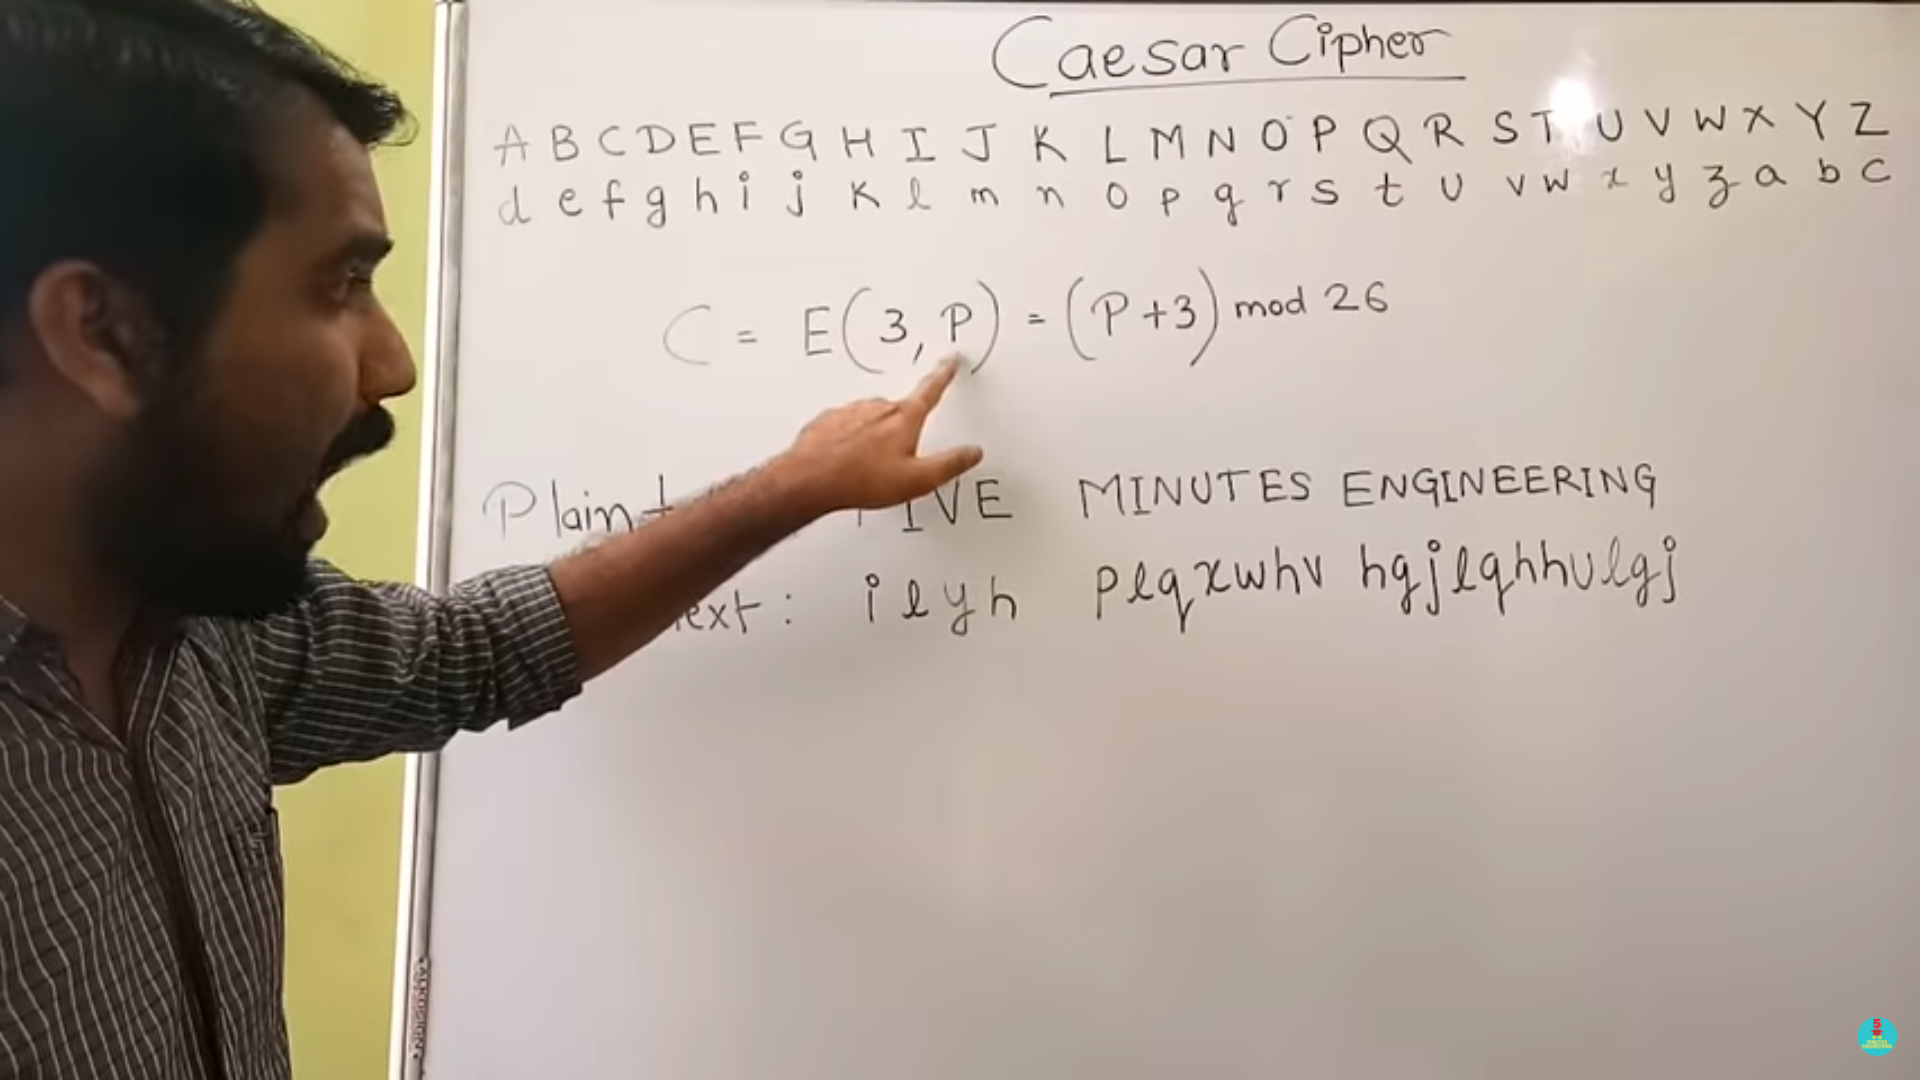 Caesar Cipher
A B C D E F G H I J K L M N O P Q R S T U V W X Y Z
d e f g h i j k l m n o p q r s t u v w x y z a b c
C = E(3, P) = (P+3) mod 26
Plaint IVE MINUTES ENGINEERING
ext : ilyh plqxwhv hgjlqhhulgj
5